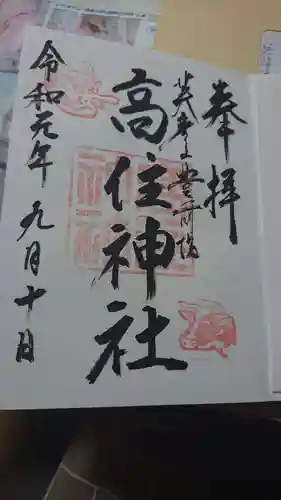 奉拝
英彦山豊前坊
高住神社
令和元年 九月十日